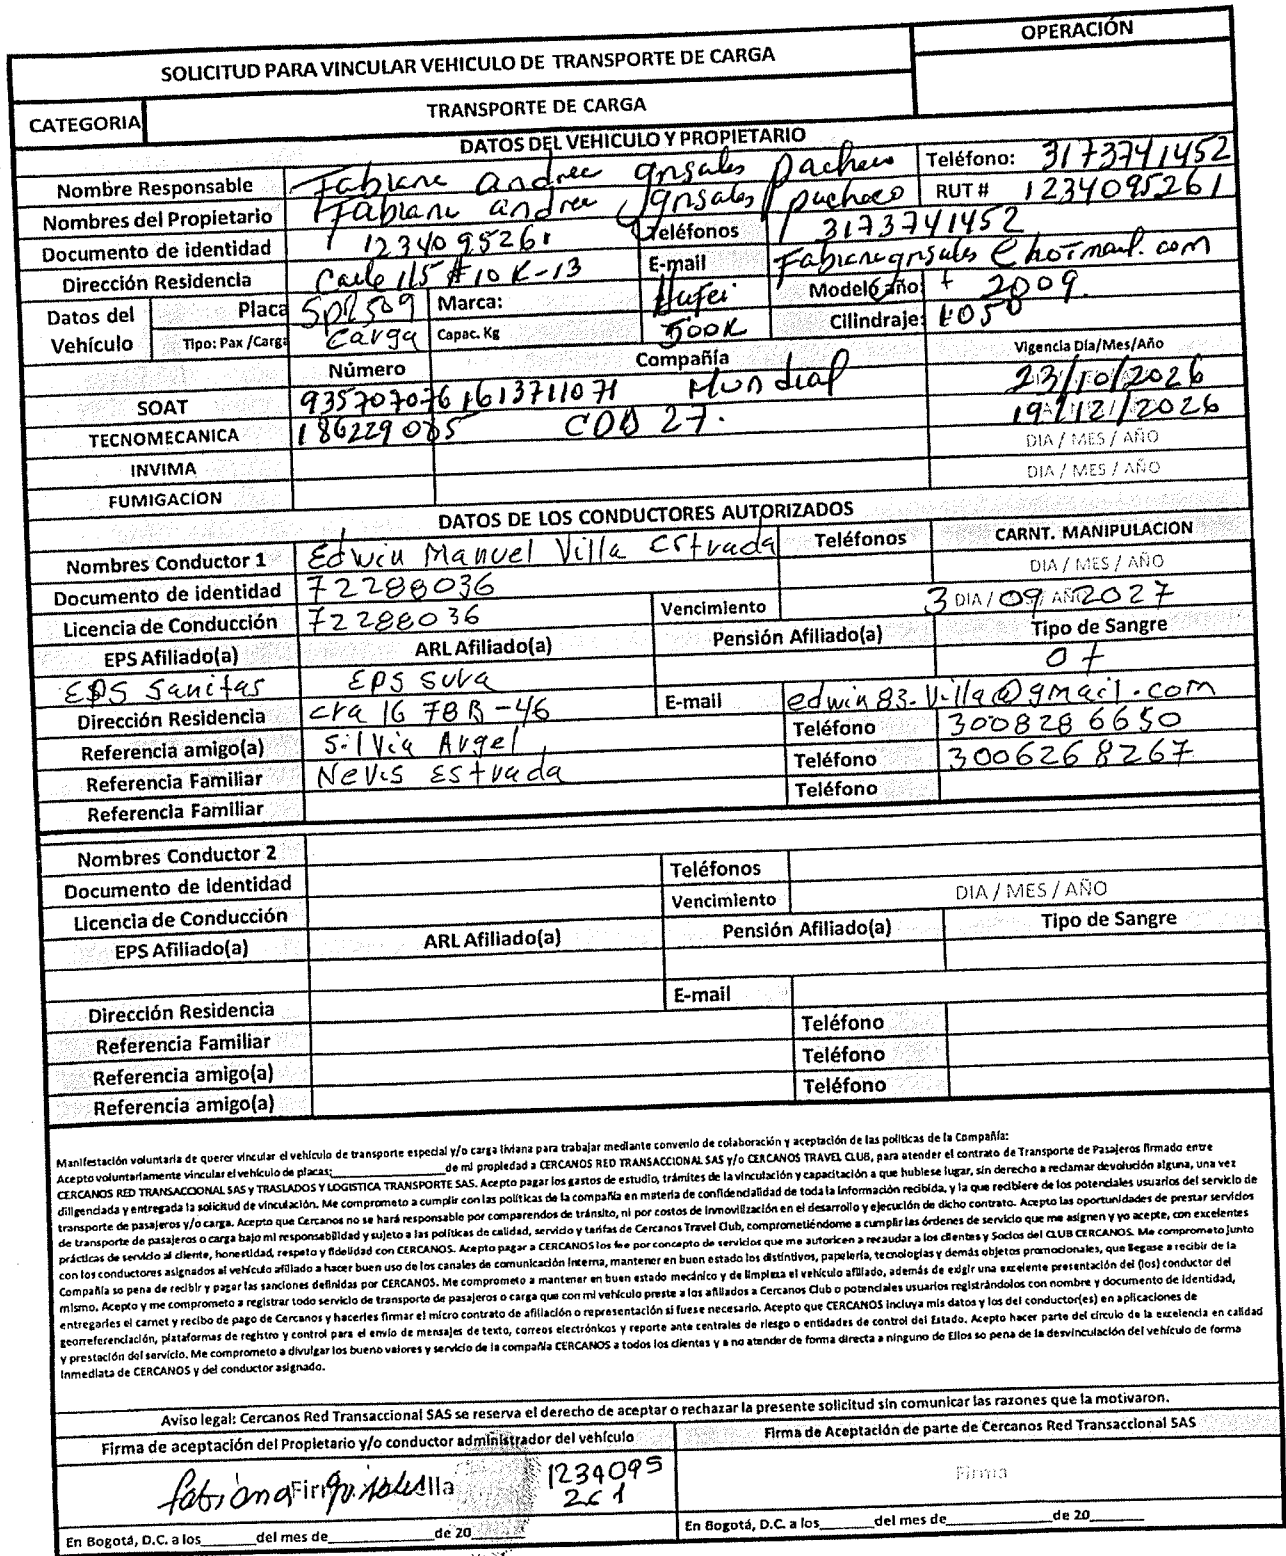 OPERACIÓN
SOLICITUD PARA VINCULAR VEHICULO DE TRANSPORTE DE CARGA
CATEGORIA TRANSPORTE DE CARGA
DATOS DEL VEHICULO Y PROPIETARIO
Nombre Responsable Fabiana andrea pacheco Teléfono: 3173741452
Nombres del Propietario Fabiana andrea pacheco RUT # 1234095261
Documento de identidad 1234095261 Teléfonos 3173741452
Dirección Residencia Calle 115 #10K-13 E-mail
Datos del Vehículo Placa Marca: Hafei Modelo año: 2009.
Tipo: Pax /Carga Carga Capac. Kg 500K Cilindraje: 1050
Número Compañía Vigencia Dia/Mes/Año
SOAT 9357070761613711071 Mundial 23/10/2026
TECNOMECANICA 186229085 CDA 27. 19/12/2026
INVIMA DIA / MES / AÑO
FUMIGACION DIA / MES / AÑO
DATOS DE LOS CONDUCTORES AUTORIZADOS
Nombres Conductor 1 Edwin Manuel Villa Estrada Teléfonos CARNT. MANIPULACION
Documento de identidad 72288036 DIA / MES / AÑO
Licencia de Conducción 72288036 Vencimiento 3 DIA / 09 / AÑO 2027
EPS Afiliado(a) ARL Afiliado(a) Pensión Afiliado(a) Tipo de Sangre
EPS Sanitas EPS sura O+
Dirección Residencia cra 16 78B-46 E-mail edwin83.Villa@gmail.com
Referencia amigo(a) Silvia Argel Teléfono 3008286650
Referencia Familiar Nevis Estrada Teléfono 3006268267
Referencia Familiar Teléfono
Nombres Conductor 2
Documento de identidad Teléfonos
Licencia de Conducción Vencimiento DIA / MES / AÑO
EPS Afiliado(a) ARL Afiliado(a) Pensión Afiliado(a) Tipo de Sangre
Dirección Residencia E-mail
Referencia Familiar Teléfono
Referencia amigo(a) Teléfono
Referencia amigo(a) Teléfono
Manifestación voluntaria de querer vincular el vehículo de transporte especial y/o carga liviana para trabajar mediante convenio de colaboración y aceptación de las políticas de la Compañía:
Acepto voluntariamente vincular el vehículo de placas:____________________de mi propiedad a CERCANOS RED TRANSACCIONAL SAS y/o CERCANOS TRAVEL CLUB, para atender el contrato de Transporte de Pasajeros firmado entre
CERCANOS RED TRANSACCIONAL SAS y TRASLADOS Y LOGISTICA TRANSPORTE SAS. Acepto pagar los gastos de estudio, trámites de la vinculación y capacitación a que hubiese lugar, sin derecho a reclamar devolución alguna, una vez
diligenciada y entregada la solicitud de vinculación. Me comprometo a cumplir con las políticas de la compañía en materia de confidencialidad de toda la información recibida, y la que recibiere de los potenciales usuarios del servicio de
transporte de pasajeros y/o carga. Acepto que Cercanos no se hará responsable por comparendos de tránsito, ni por costos de inmovilización en el desarrollo y ejecución de dicho contrato. Acepto las oportunidades de prestar servicios
de transporte de pasajeros o carga bajo mi responsabilidad y sujeto a las políticas de calidad, servicio y tarifas de Cercanos Travel Club, comprometiéndome a cumplir las órdenes de servicio que me asignen y yo acepte, con excelentes
prácticas de servicio al cliente, honestidad, respeto y fidelidad con CERCANOS. Acepto pagar a CERCANOS los fee por concepto de servicios que me autoricen a recaudar a los clientes y Socios del CLUB CERCANOS. Me comprometo junto
con los conductores asignados al vehículo afiliado a hacer buen uso de los canales de comunicación interna, mantener en buen estado los distintivos, papelería, tecnologías y demás objetos promocionales, que llegase a recibir de la
Compañía so pena de recibir y pagar las sanciones definidas por CERCANOS. Me comprometo a mantener en buen estado mecánico y de limpieza el vehículo afiliado, además de exigir una excelente presentación del (los) conductor del
mismo. Acepto y me comprometo a registrar todo servicio de transporte de pasajeros o carga que con mi vehículo preste a los afiliados a Cercanos Club o potenciales usuarios registrándolos con nombre y documento de identidad,
entregarles el carnet y recibo de pago de Cercanos y hacerles firmar el micro contrato de afiliación o representación si fuese necesario. Acepto que CERCANOS incluya mis datos y los del conductor(es) en aplicaciones de
georreferenciación, plataformas de registro y control para el envío de mensajes de texto, correos electrónicos y reporte ante centrales de riesgo o entidades de control del Estado. Acepto hacer parte del círculo de la excelencia en calidad
y prestación del servicio. Me comprometo a divulgar los bueno valores y servicio de la compañía CERCANOS a todos los clientes y a no atender de forma directa a ninguno de Ellos so pena de la desvinculación del vehículo de forma
inmediata de CERCANOS y del conductor asignado.
Aviso legal: Cercanos Red Transaccional SAS se reserva el derecho de aceptar o rechazar la presente solicitud sin comunicar las razones que la motivaron.
Firma de aceptación del Propietario y/o conductor administrador del vehículo Firma de Aceptación de parte de Cercanos Red Transaccional SAS
fabiana 1234095 Firma
261
En Bogotá, D.C. a los_______del mes de____________de 20_______ En Bogotá, D.C. a los_______del mes de____________de 20_______